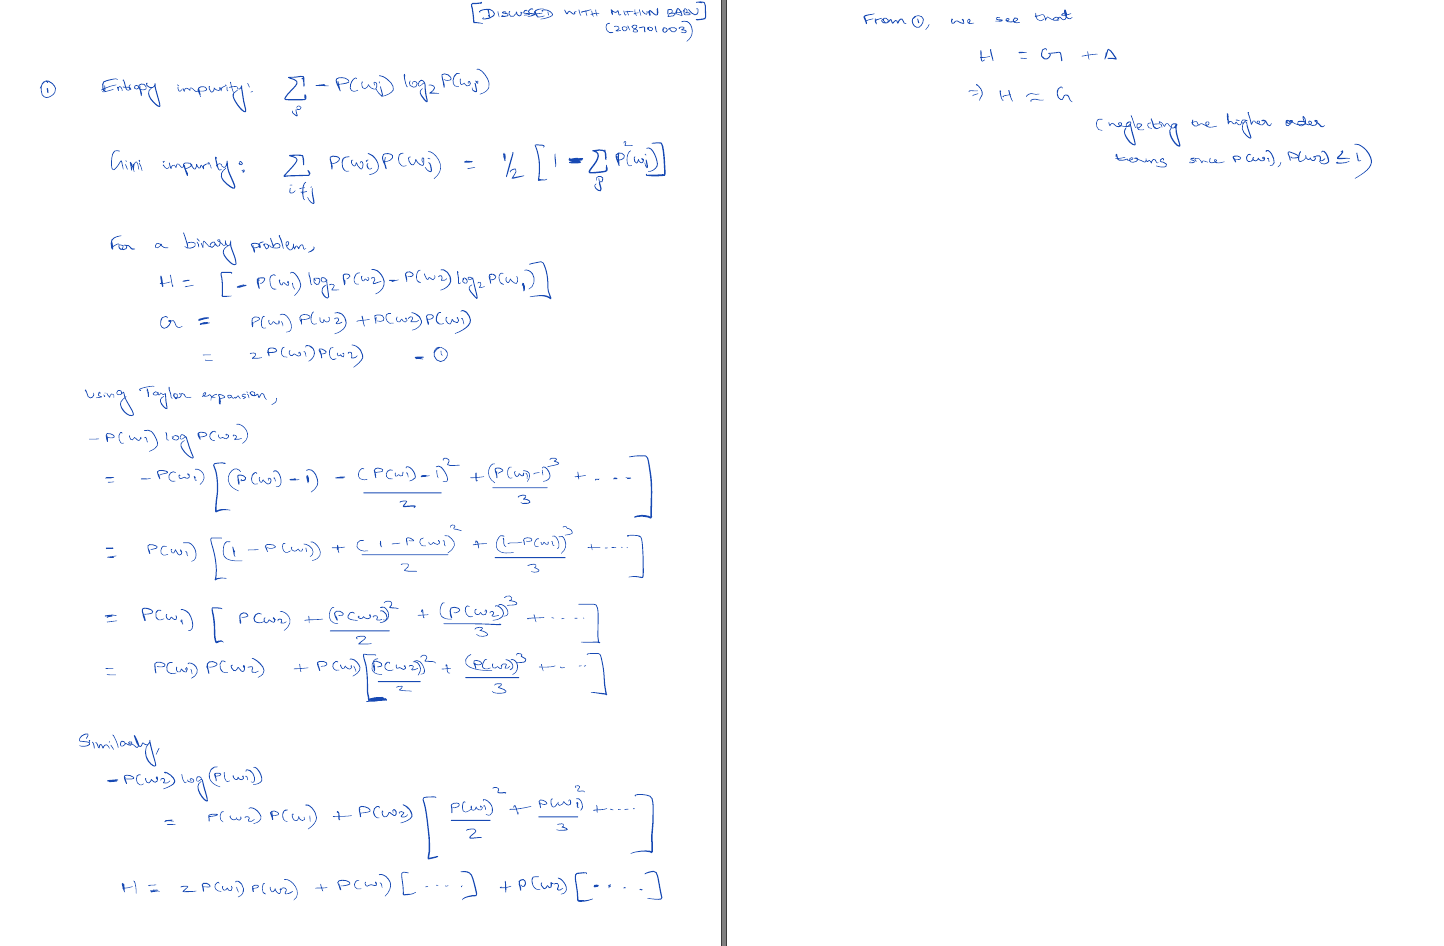 [DISUSSED WITH MITHUN BABU]
(2018701003)
① Entropy impurity: ∑_j - P(ωj) log₂ P(ωj)
Gini impurity: ∑_{i≠j} P(ωi)P(ωj) = 1/2 [1 - ∑_j P²(ωj)]
For a binary problem,
H = [- P(ω₁) log₂ P(ω2) - P(ω2) log₂ P(ω₁)]
G = P(ω₁) P(ω2) + P(ω2) P(ω₁)
= 2 P(ω₁) P(ω2) - ①
Using Taylor expansion,
- P(ω₁) log P(ω2)
= - P(ω₁) [(P(ω₁) - 1) - (P(ω₁) - 1)²/2 + (P(ω₁) - 1)³/3 + ....]
= P(ω₁) [(1 - P(ω₁)) + (1 - P(ω₁))²/2 + (1 - P(ω₁))³/3 + ....]
= P(ω₁) [P(ω2) + (P(ω2))²/2 + (P(ω2))³/3 + ....]
= P(ω₁) P(ω2) + P(ω₁) [(P(ω2))²/2 + (P(ω2))³/3 + ....]
Similarly,
- P(ω2) log (P(ω₁))
= P(ω2) P(ω₁) + P(ω2) [P(ω₁)²/2 + P(ω₁)²/3 + ....]
H = 2 P(ω₁) P(ω2) + P(ω₁) [....] + P(ω2) [....]
From ①, we see that
H = G + Δ
⇒ H ≈ G
(neglecting the higher order
terms since P(ω₁), P(ω2) ≤ 1)